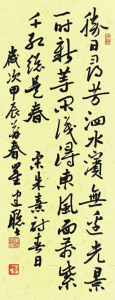 勝日尋芳泗水濱無邊光景
一時新等閑識得東風面萬紫
千紅總是春 宋朱熹詩春日
歲次甲辰春